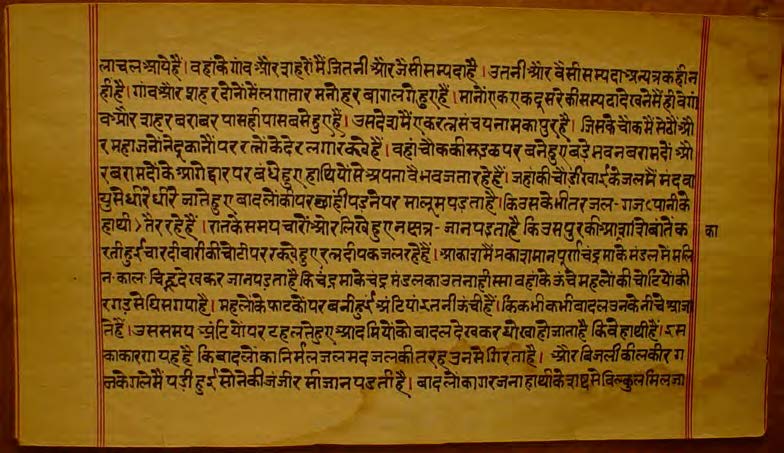 लाचल आये हैं। वहांके गांव और शहरों में जितनी और जैसी सम्पदा है। उतनी और वैसी सम्पदा अन्यत्र कहीं न
हीं है। गांव और शहर दोनों में लगातार मनोहर बाग लगे हुए हैं। मानों एक एक दूसरे की सम्पदा देखने में ही वे गां
व और शहर बराबर पास ही पास बसे हुए हैं। उस देश में एक रत्नसंचय नाम का पुर है। जिसके चौक में सेठों औ
र महाजनों ने दूकानों पर रत्नों के ढेर लगा रक्खे हैं। वहां चौक की सड़क पर बने हुए बड़े भवन बरामदों औ
र बरामदों के आगे द्वार पर बंधे हुए हाथियों से अपना वैभव जता रहे हैं। जहा की चौडी खाई के जल में मंद वा
यु से धीरे धीरे जाते हुए बादलों की परछाहीं पड़ने पर मालूम पड़ता है। कि उसके भीतर जल-गज पानी के
हाथी तैर रहे हैं। रात के समय चारों ओर लिखे हुए नक्षत्र- जान पड़ता है कि उस पुर की आशशि बांते क का
रती हुई चारदीवारी की चोटी पर रक्खे हुए रत्नदीपक जल रहे हैं। आकाश में प्रकाशमान पूर्ण चंद्रमा के मंडल में मलि
न-काल-चिह्न देखकर जान पड़ता है कि चंद्रमा के चंद्रमंडल का उतना हीस्सा वहां के ऊंचे महलों की चोटियों की
रगड़ से घिस गया है। महलों के फाटकों पर बनी हुई अंटियां इतनी ऊंची हैं। कि कभी कभी बादल उनके नीचे आजा
ते हैं। उस समय अंटियों पर टहलते हुए आदमियों को बादल देखकर धोखा हो जाता है कि वे हाथी हैं। इस
का कारण यह है कि बादलों का निर्मल जल मद जल की तरह उनसे गिरता है। और बिजली की लकीर ग
न के गले में पड़ी हुई सोने की जंजीर सी जान पड़ती है। बादलों का गरजना हाथी के शब्द से बिल्कुल मिल जा